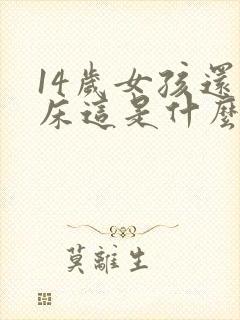 14歲女孩還
床這是什麼
莫離生